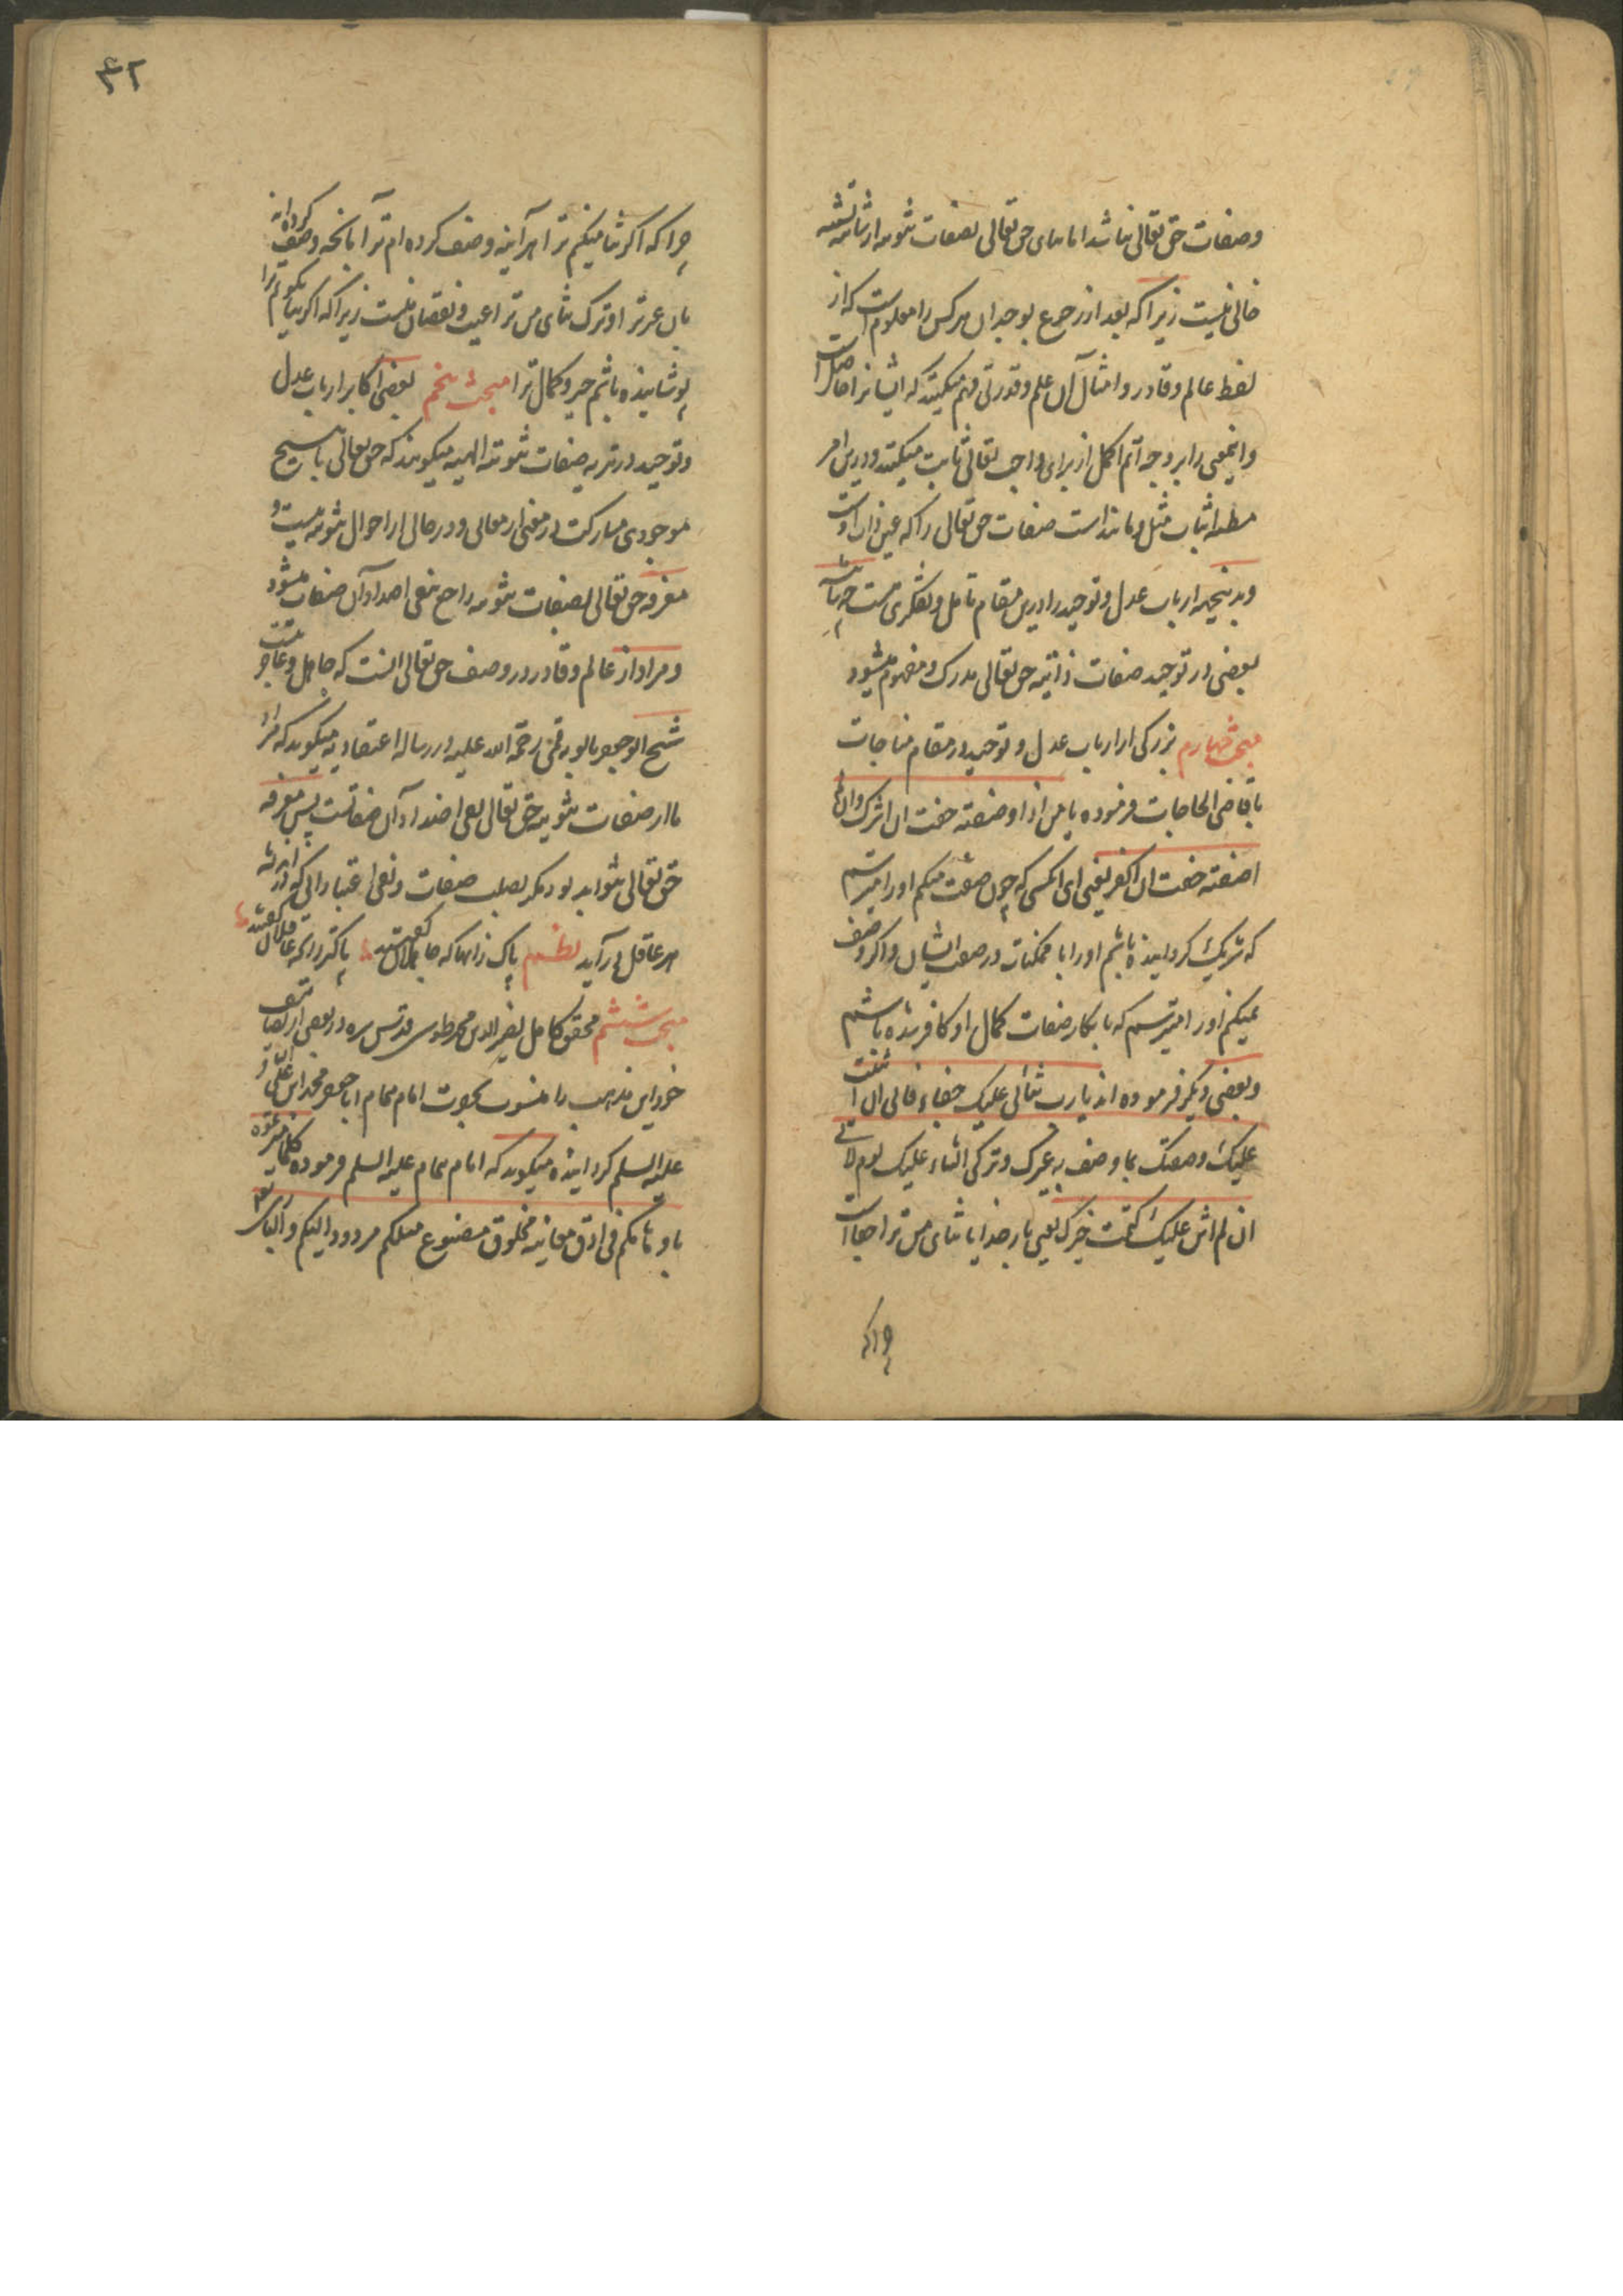 وصفات حق تعالی نباشد اما ثنای حق تعالی بصفات ثبوتیه از شائبه تشبیه
خالی نیست زیرا که بعد از رجوع بوجدان هر کس را معلوم است که از
لفظ عالم و قادر و امثال آن علم و قدرتی فهم میکنند که ایشانرا حاصل است
و اینمعنی را بر وجه اتم اکمل از برای واجب تعالی ثابت میکنند و درین امر
مظنه اثبات مثل و مانند است صفات حق تعالی را که عین ذات اوست
و بدینجهة ارباب عدل و توحید را درین مقام تامل و تفکری هست
بعضی در توحید صفات ذاتیه حق تعالی مدرک و مفهوم میشود
مبحث چهارم بزرکی از ارباب عدل و توحید در مقام مناجات
با قاضی الحاجات فرموده یا من اذا وصفته خفت ان اشرک وان لم
اصفته خفت ان اکفر یعنی ای انکسی که چون صفت میکنم اورا میترسم
که شریک کردانیده باشم اورا با ممکنات در صفت ایشان و اکر وصف
نمیکنم اورا میترسم که بانکار صفات کمال او کافر شده باشم
و بعضی دیکر فرموده اند یارب ثنائی علیک جفاء فانی ان اثنیت
علیک وصفتک بما وصف به غیرک و ترکی الثناء علیک لوم لانی
ان لم اثن علیک کتمت خیرک یعنی بار خدایا ثنای من ترا جفا است
چرا که
۴۲
چرا که اکر ثنا میکنم ترا هر آینه وصف کرده ام ترا بانچه وصف کرده اند
بان غیر ترا و ترک ثنای من ترا عیب و نقصان منست زیرا که اکر ثنا نکویم ترا
پوشانیده باشم خیر و کمال ترا مبحث پنجم بعضی اکابر ارباب عدل
و توحید در تنزیه صفات ثبوتیه الهیه میکویند که حق تعالی با هیچ
موجودی مشارکت در معنی از معانی و در حالی از احوال ثبوتیه نیست و
معرفه حق تعالی بصفات ثبوتیه راجع بنفی اضداد آن صفات میشود
و مراد از عالم و قادر در وصف حق تعالی انست که جاهل و عاجز نیست
شیخ ابو جعفر بابویه قمی رحمة الله علیه در رساله اعتقادیه میکوید که مراد
ما از صفات ثبوتیه حق تعالی نفی اضداد آن صفاتست پس معرفه
حق تعالی نتواند بود مکر بسلب صفات و نفی اعتباراتی که در اندیشه
هر عاقل در آید نظم پاک زانها که جاهلان کفتند پاکتر زانکه عاقلان کفتند
مبحث ششم محقق کامل نصیر الدین محمد طوسی قدس سره در بعضی از تصانیف
خود این مذهب را منسوب بحضرت امام همام ابا جعفر محمد ابن علی الباقر
علیه السلم کردانیده میکوید که امام همام علیه السلم فرموده کلما میزتموه
باوهامکم فی ادق معانیه مخلوق مصنوع مثلکم مردود الیکم و الباری تعالی